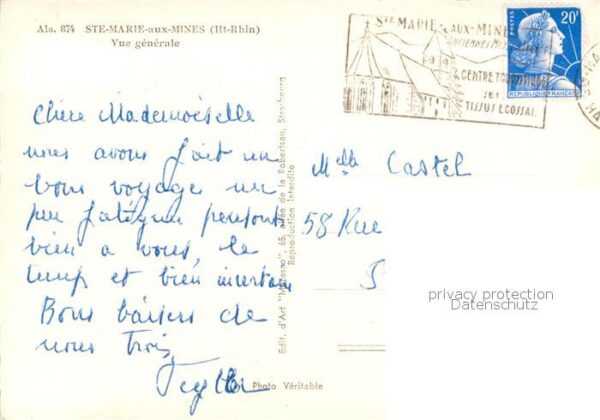 Als. 874 STE-MARIE-aux-MINES (Ht-Rhin)
Vue générale
Chère Mademoiselle
nous avons fait un
bons voyages un
peu fatigun pensons
bien a vous, le
temps et bien incertain
Bons baisers de
nous trois
Edit. d'Art 65, de la Robertsau, Strasbourg
Reproduction interdite
Photo Véritable
STE MARIE-AUX-MINES
CENTRE
ET
TISSUS ECOSSAI
POSTES
20F
REPUBLIQUE FRANÇAISE
Melle Castel
58 Rue
S
privacy protection
Datenschutz